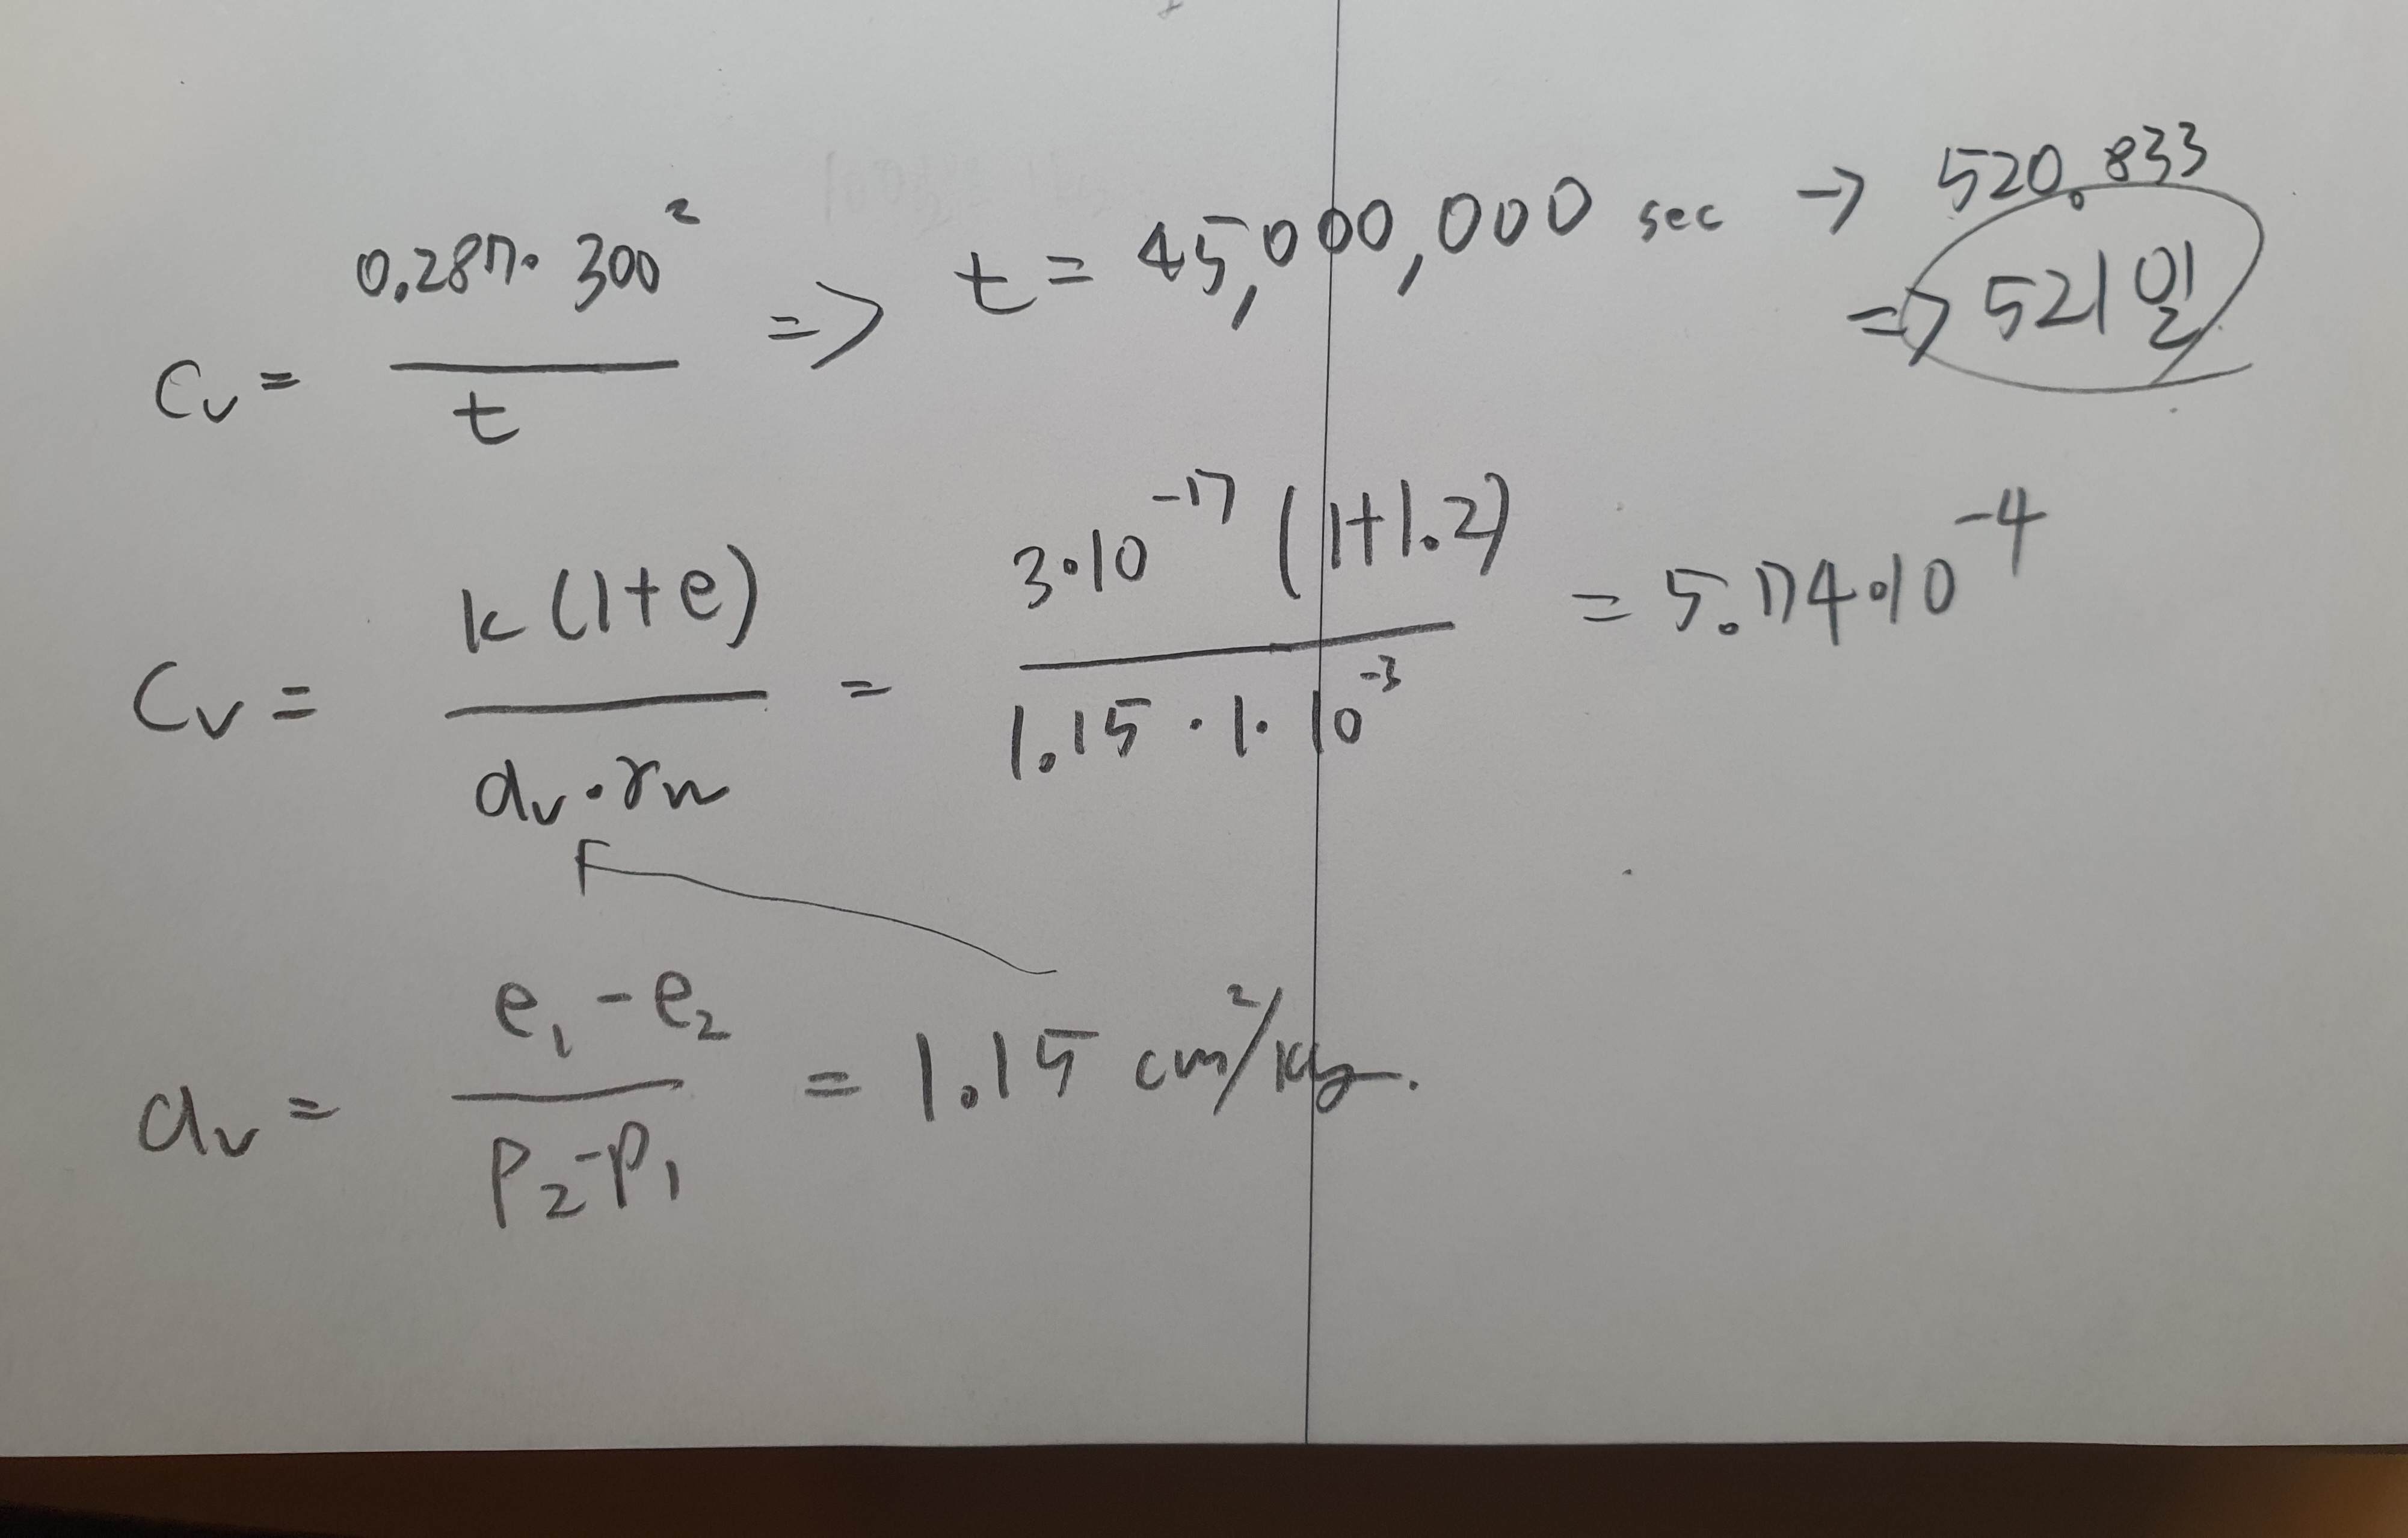 Cv = 0.287·300² / t => t = 45,000,000 sec → 520.833
=> 521일
Cv = k(1+e) / av·rw = 3·10⁻¹⁷(1+1.2) / 1.15·1·10⁻³ = 5.74·10⁻⁴
av = e₁-e₂ / P₂-P₁ = 1.15 cm²/kg.